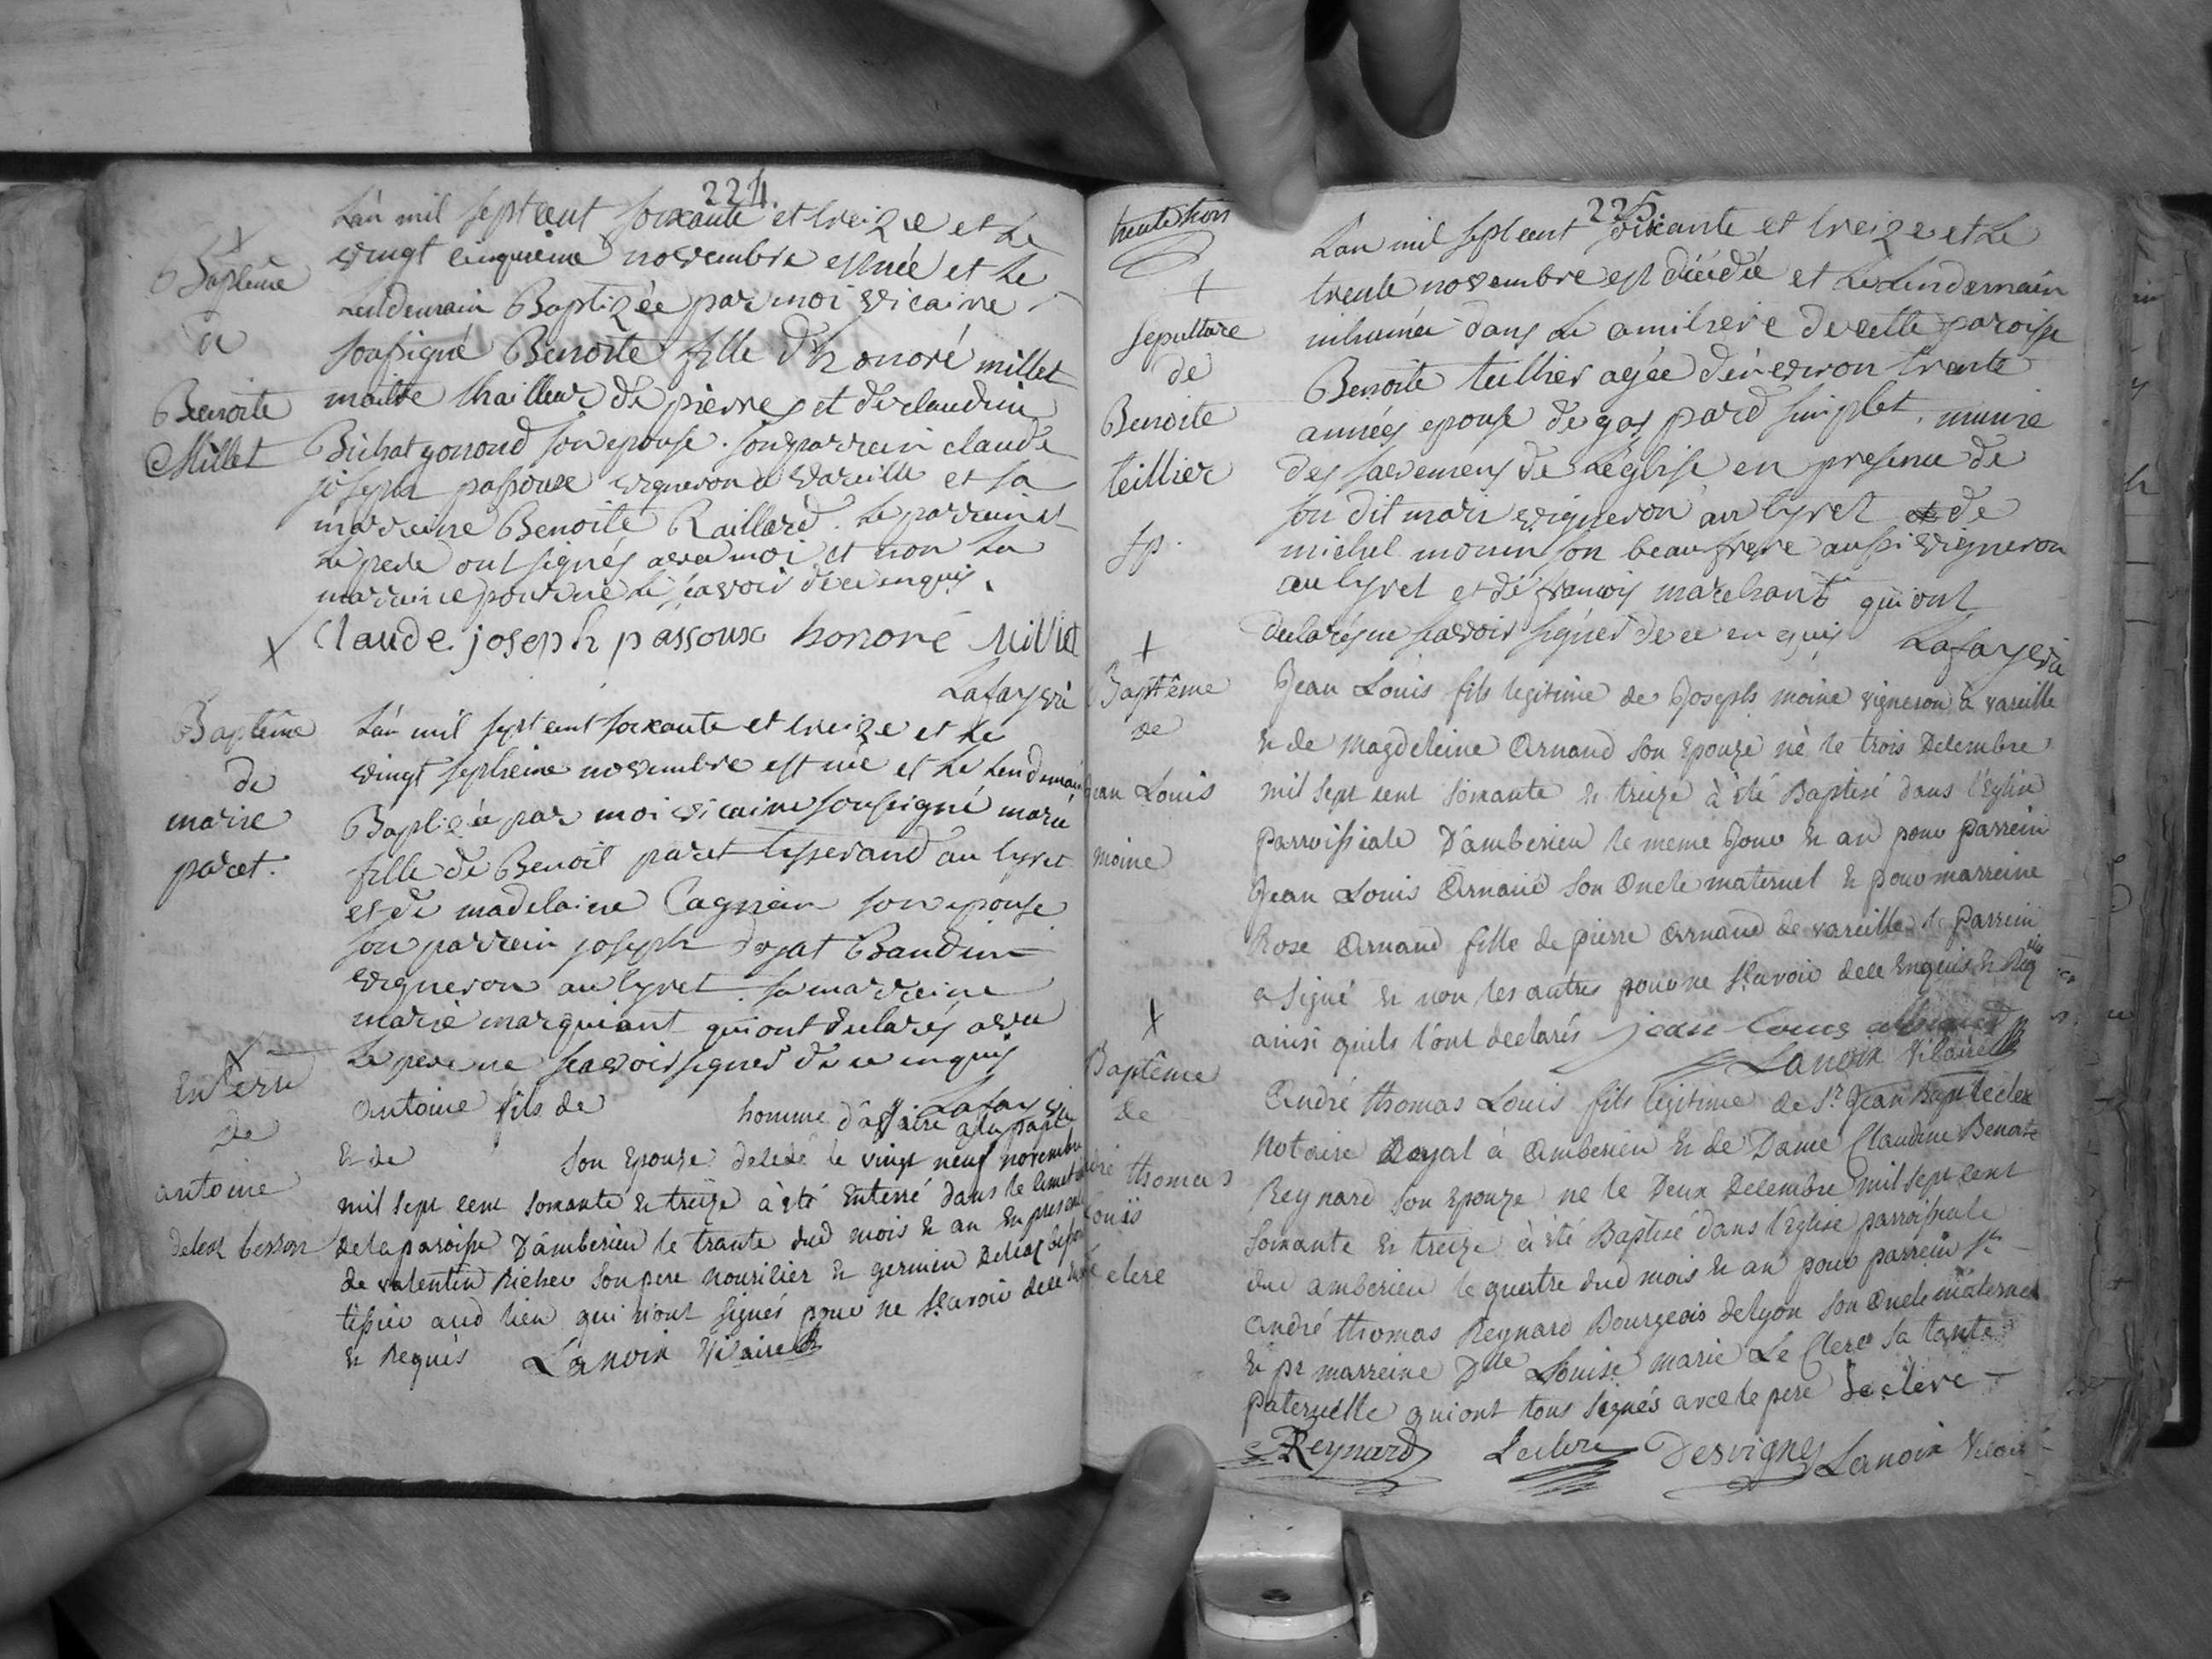 224
L'an mil sept cent soixante et treize et le
vingt cinquieme novembre est née et le
lendemain Baptizée par moi vicaire
soussigné Benoite fille d'honoré millet
maitre thailleur de pierres et de claudine
Bichat gonond son epouse. son parrain claude
joseph passoux vigneron a vareille et sa
marraine Benoite Raillard. Le parrain et
le pere ont signés avec moi et non la
marraine pour ne le sçavoir de ce enquis.
Claude joseph passoux honoré Millet
Lafay vic
Baptême
de
Benoite
Millet
Baptême
de
marie
paret.
L'an mil sept cent soixante et treize et le
vingt septieme novembre est née et le lendemain
Baptizée par moi vicaire soussigné marie
fille de Benoit paret tisserand au tyret
et de madelaine Cagnin son epouse
son parrain joseph dojat Baudin
vigneron au tyret sa marreine
marie marquiant qui ont declarés avec
le pere ne scavoir signer de ce enquis
Lafay vic
Enterre
de
antoine
delest besson
antoine fils de homme d'affaire a la
& de son Epouze decedé le vingt neuf novembre
mil sept cent soixante & treize à été Enterré dans le
de la paroisse D'amberieu le trante dud mois & an En presence
de valentin Richer son pere nourissier & germain
tissier aud lieu qui n'ont signés pour ne scavoir de ce
& Requis Lanoix Vicaire
225
trente trois
Sepulture
de
Benoite
teillier
sp.
L'an mil sept cent soixante et treize et le
trente novembre est décédée et le lendemain
inhumée dans le cimitiere de cette paroisse
Benoite tullier agée d'environ trente
années epouse de gaspard simplet, munie
des sacremens de l'église en presence de
son dit mari vigneron au tyret et de
michel monin son beaufrere aussi vigneron
au tyret et de françois marchant qui ont
declarés ne scavoir signer de ce enquis Lafay vic
Baptême
de
jean Louis
moine
Jean Louis fils legitime de Joseph moine vigneron à vareille
& de Magdeleine Arnaud son Epouze né le trois Decembre
mil sept cent soixante & treize à été Baptisé dans l'Eglise
parroissiale D'amberieu le meme Jour & an pour parrein
Jean Louis Arnaud son Oncle maternel & pour marreine
Rose Arnaud fille de pierre Arnaud de vareille le parrein
a signé & non les autres pour ne scavoir de ce Enquis & Req
ainsi quils l'ont declarés jean louis arnaud
Lanoix Vicaire
Baptême
de
thomas
Louis
clerc
André thomas Louis fils legitime de Sr Jean Baptiste
Notaire Royal à Amberieu & de Dame Claudine Benoite
Reynard son Epouze né le Deux Decembre mil sept cent
soixante & treize à été Baptisé dans l'Eglise parroissiale
dud amberieu le quatre dud mois & an pour parrein Sr
André thomas Reynard Bourgeois de lyon son Oncle maternel
& pr marreine Dlle Louise marie Le Clerc sa tante
paternelle qui ont tous signés avec le pere Leclerc
Reynard Leclerc Desvignes Lanoix Vicaire